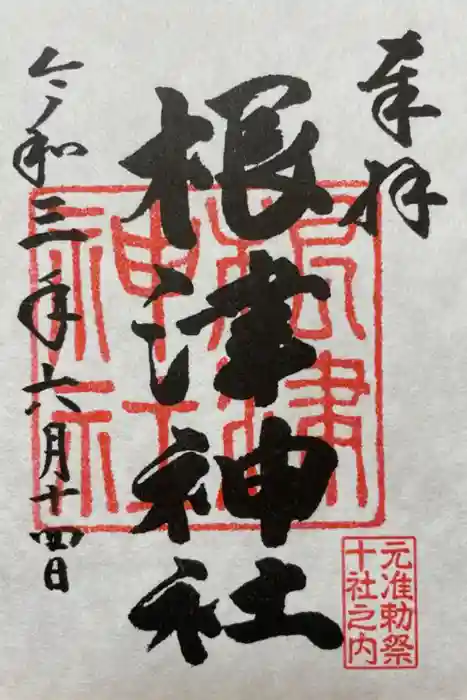 奉拝
根津神社
根津神社
元准勅祭
十社之内
令和三年六月十四日